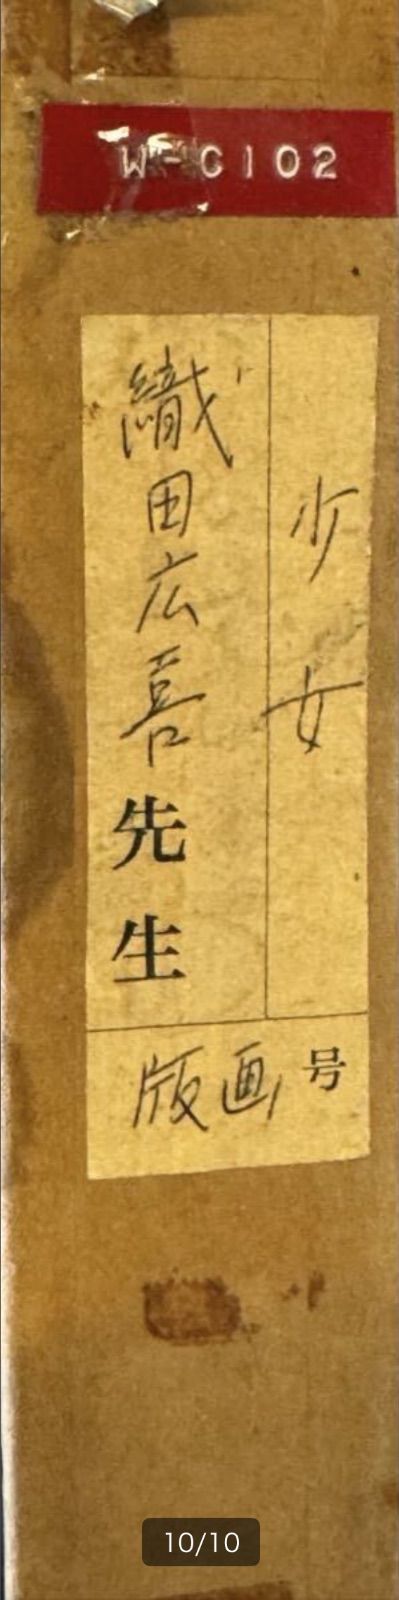 W-C102
少女
織田広喜先生
号
版画
10/10